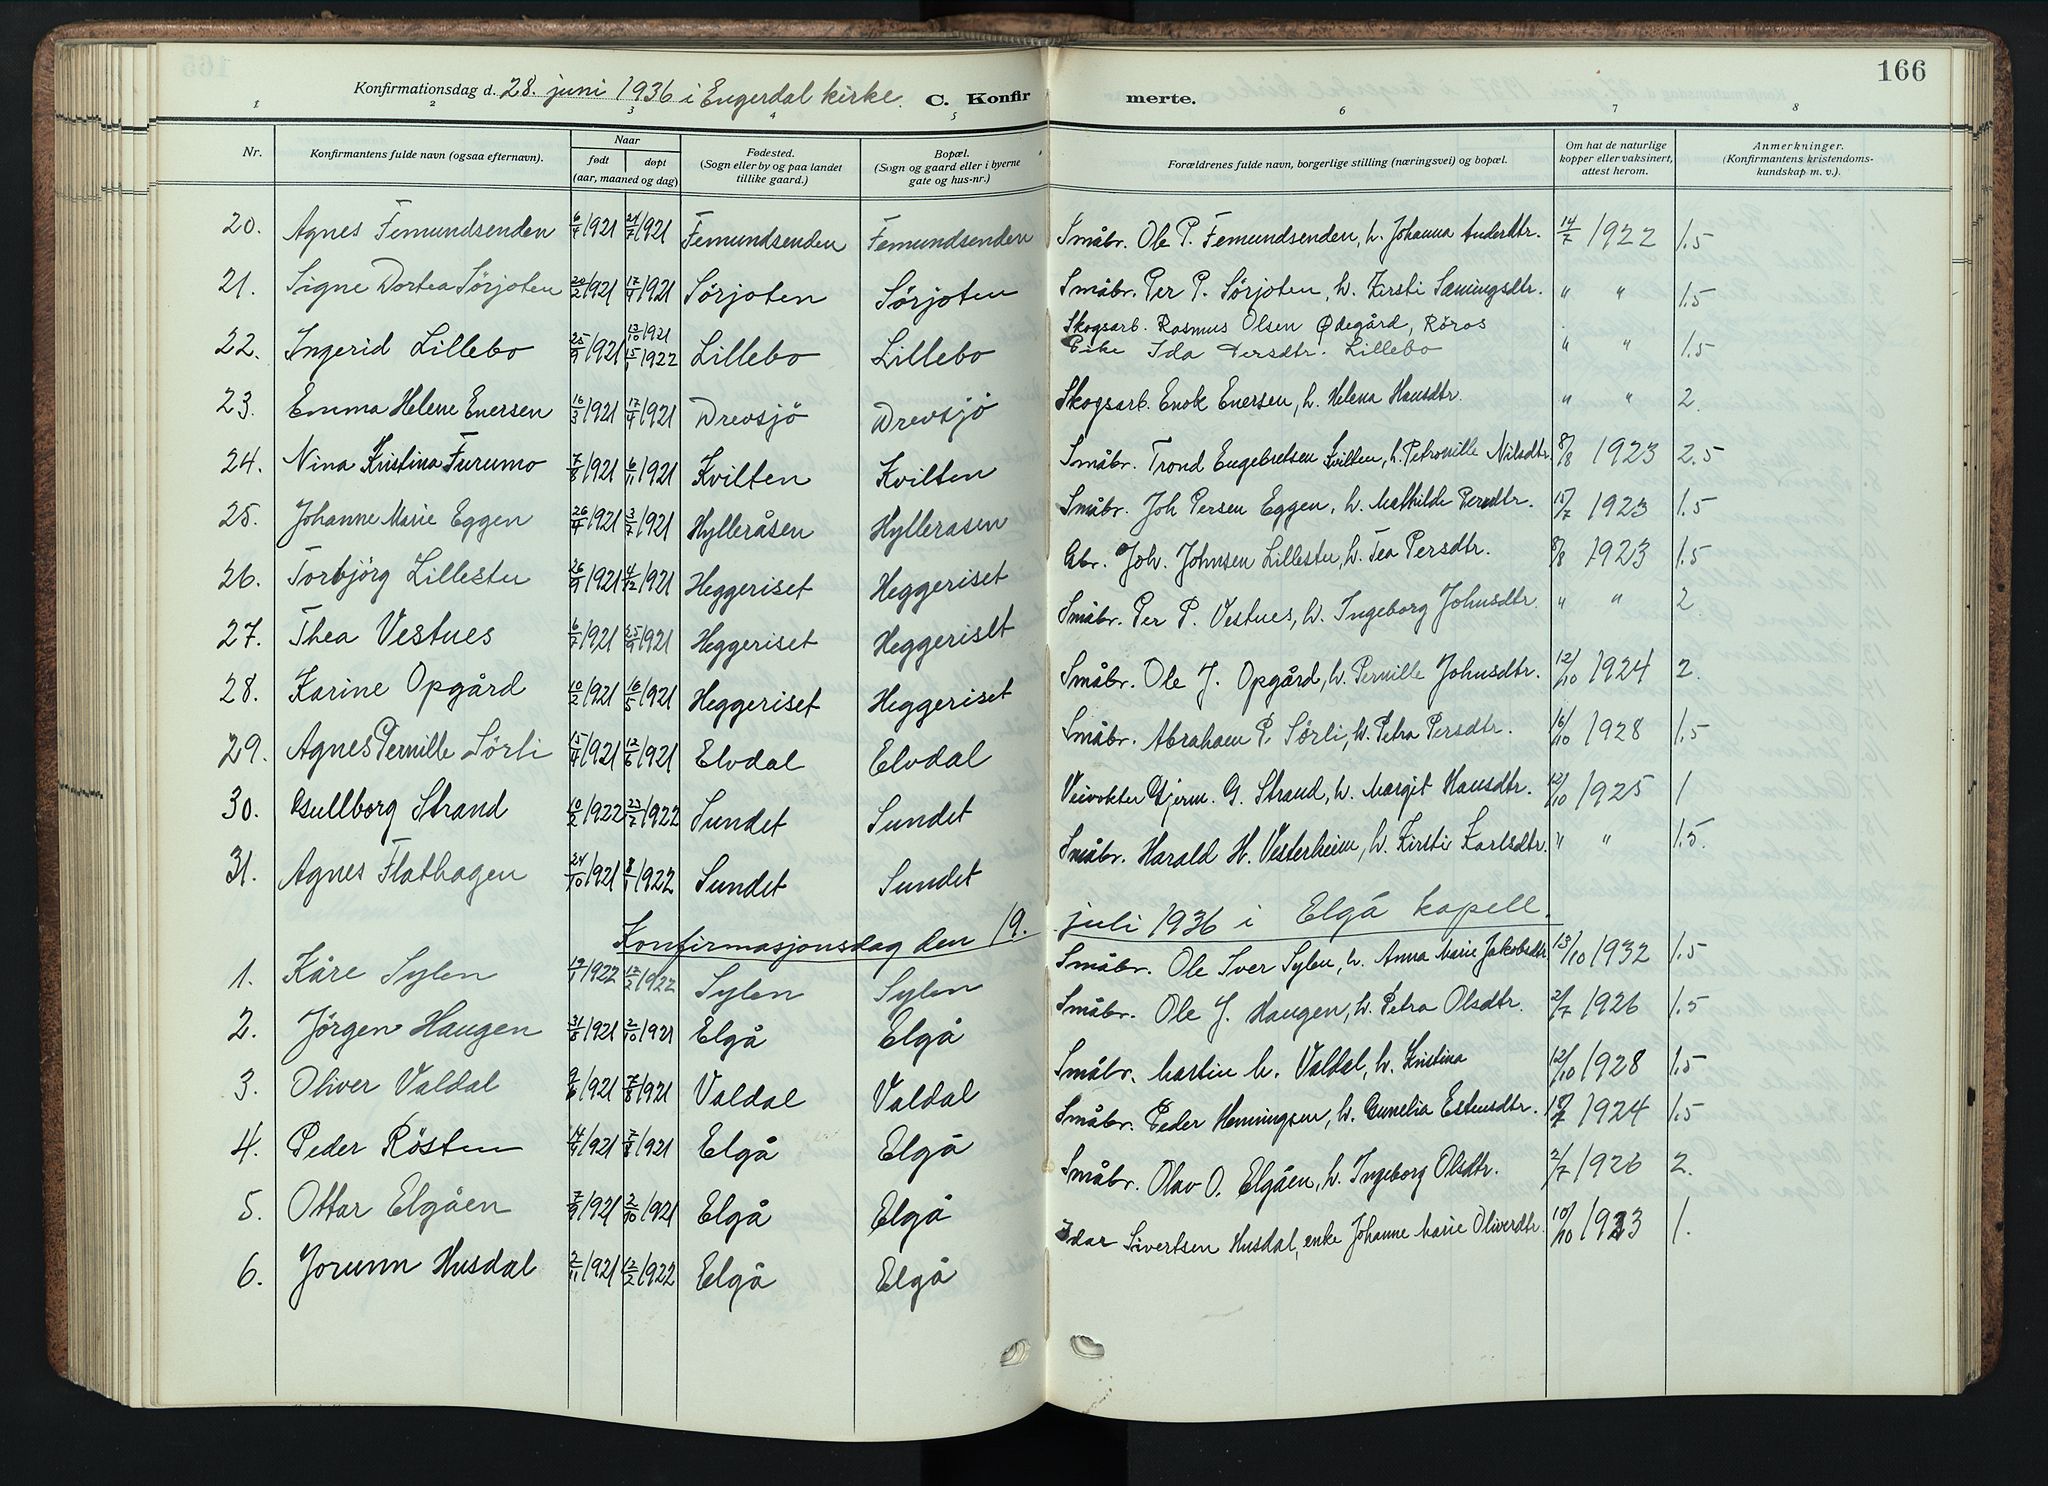 166
Konfirmationsdag d. 28. juni 1936 i Engerdal kirke. C. Konfirmerte.
1 2 3 4 5 6 7 8
Nr. Konfirmantens fulde navn (ogsaa efternavn). Naar født døpt (aar, maaned og dag) Fødested. (Sogn eller by og paa landet tillike gaard.) Bopæl. (Sogn og gaard eller i byerne gate og hus-nr.) Forældrenes fulde navn, borgerlige stilling (næringsvei) og bopæl. Om hat de naturlige kopper eller vaksinert, attest herom. Anmerkninger. (Konfirmantens kristendomskundskap m. v.).
20. Agnes Femundsenden 6/4 1921 24/7 1921 Femundsenden Femundsenden Småbr. Ole P. Femundsenden, h. Johanna Andersdtr. 14/7 1922 1.5
21. Signe Dortea Sørjoten 20/2 1921 17/4 1921 Sørjoten Sørjoten Småbr. Per P. Sørjoten, h. Kirsti Sæmingsdtr. " " 1.5
22. Ingerid Lillebo 25/9 1921 13/10 1921 15/1 1922 Lillebo Lillebo Skogsarb. Rasmus Olsen Ødegård, Röros
Pike Ida Persdtr. Lillebo " " 1.5
23. Emma Helene Enersen 16/3 1921 17/4 1921 Drevsjö Drevsjö Skogsarb. Enok Enersen, h. Helena Hansdtr. " " 2.
24. Nina Kristina Furumo 7/8 1921 6/11 1921 Kvilten Kvilten Småbr. Trond Engebretsen Kvilten, h. Petronille Nilsdtr. 8/8 1923 2.5
25. Johanne Marie Eggen 26/4 1921 3/7 1921 Hylleråsen Hylleråsen Småbr. Joh Persen Eggen, h. Mathilde Persdtr. 15/7 1923 1.5
26. Torbjörg Lillestu 26/9 1921 4/12 1921 Heggeriset Heggeriset Gbr. Joh. Johnsen Lillestu, h. Tea Persdtr. 8/8 1923 1.5
27. Thea Vestnes 6/7 1921 25/9 1921 Heggeriset Heggeriset Småbr. Per P. Vestnes, h. Ingeborg Johnsdtr. " " 2
28. Karine Opgård 10/2 1921 16/5 1921 Heggeriset Heggeriset Småbr. Ole J. Opgård, h. Pernille Johnsdtr. 12/10 1924 2.
29. Agnes Pernille Sørli 15/4 1921 12/6 1921 Elvdal Elvdal Småbr. Abraham P. Sørli, h. Petra Persdtr. 16/10 1928 1.5
30. Gullborg Strand 10/2 1922 23/7 1922 Sundet Sundet Veivokter Gjerm. G. Strand, h. Margit Hansdtr. 12/10 1925 1
31. Agnes Flathagen 24/10 1921 8/1 1922 Sundet Sundet Småbr. Harald H. Vesterheim, h. Kirsti Karlsdtr. " " 1.5.
Konfirmasjonsdag den 19. juli 1936 i Elgå kapell.
1. Kåre Sylen 1922 1922 Sylen Sylen Småbr. Ole Iver Sylen, h. Anna Marie Jakobsdtr 13/10 1932 1.5
2. Jørgen Haugen 31/8 1921 2/10 1921 Elgå Elgå Småbr. Ole J. Haugen, h. Petra Olsdtr. 2/7 1926 1.5
3. Oliver Valdal 9/6 1921 7/8 1921 Valdal Valdal Småbr. Martin M. Valdal, h. Kristina 12/10 1928 1.5
4. Peder Rösten 1921 7/8 1921 Elgå Elgå Småbr. Peder Henningsen, h. Gunelia Estensdtr. 1924 1.5
5. Ottar Elgåen 7/9 1921 2/10 1921 Elgå Elgå Småbr. Olav O. Elgåen, h. Ingeborg Olsdtr. 2/7 1926 2.
6. Jorunn Husdal 2/11 1921 12/2 1922 Elgå Elgå Idar Sivertsen Husdal, enke Johanne Marie Oliversdtr. 10/10 1923 1.